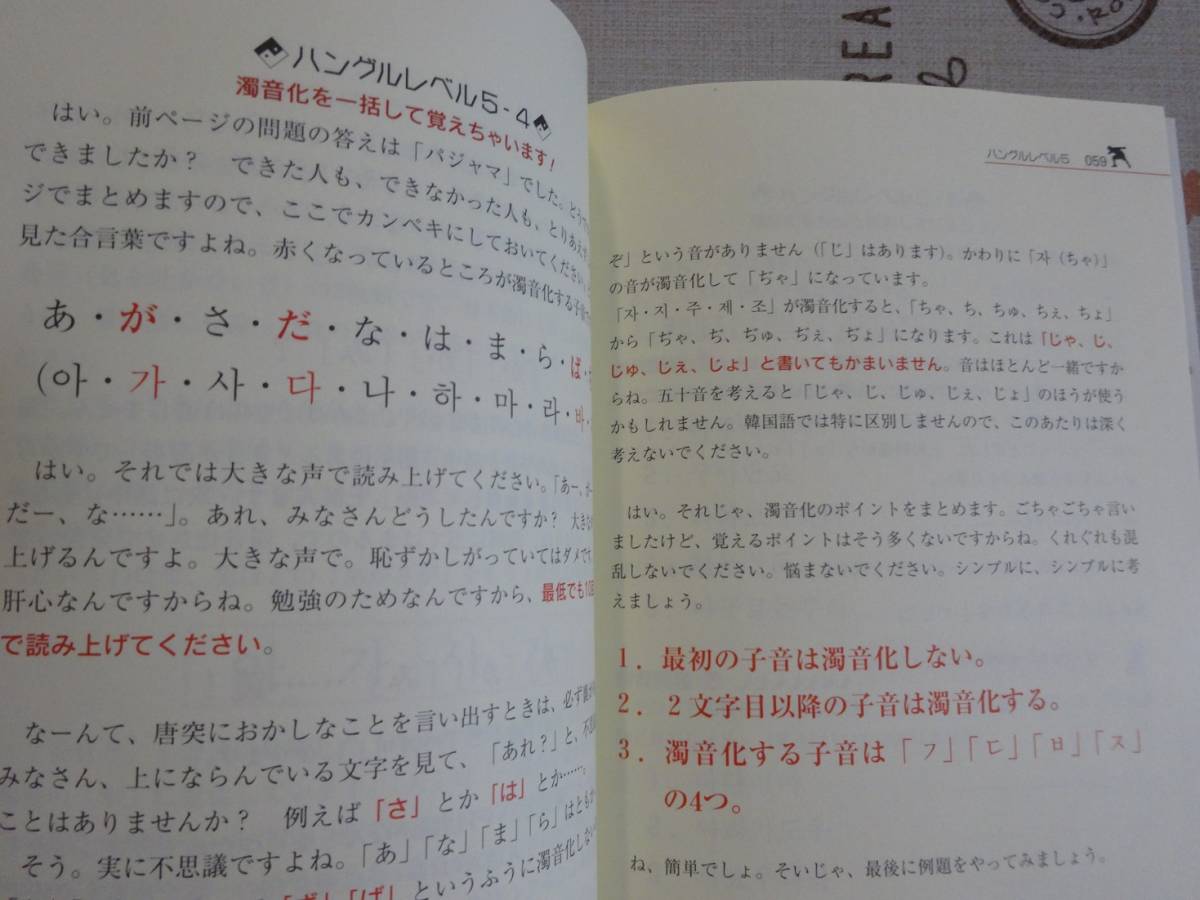 ハングルレベル5-4
濁音化を一括して覚えちゃいます!
はい。前ページの問題の答えは「パジャマ」でした。どう
できましたか? できた人も、できなかった人も、とりあえず
ジでまとめますので、ここでカンペキにしておいてください。
見た合言葉ですよね。赤くなっているところが濁音化する子音
あ・が・さ・だ・な・は・ま・ら・ば
(아・가・사・다・나・하・마・라・바
はい。それでは大きな声で読み上げてください。「あー、がー
だー、な……」。あれ、みなさんどうしたんですか? 大き
上げるんですよ。大きな声で。恥ずかしがっていてはダメです
肝心なんですからね。勉強のためなんですから、最低でも10回
で読み上げてください。
なーんて、唐突におかしなことを言い出すときは、必ず
みなさん、上にならんでいる文字を見て、「あれ?」と、不思
ことはありませんか? 例えば「さ」とか「は」とか……。
そう。実に不思議ですよね。「あ」「な」「ま」「ら」はともか
「ざ」「ば」というふうに濁音化しない
ハングルレベル5 059
ぞ」という音がありません(「じ」はあります)。かわりに「자(ちゃ)」
の音が濁音化して「ぢゃ」になっています。
「자・지・주・제・조」が濁音化すると、「ちゃ、ち、ちゅ、ちぇ、ちょ」
から「ぢゃ、ぢ、ぢゅ、ぢぇ、ぢょ」になります。これは「じゃ、じ、
じゅ、じぇ、じょ」と書いてもかまいません。音はほとんど一緒ですか
らね。五十音を考えると「じゃ、じ、じゅ、じぇ、じょ」のほうが使う
かもしれません。韓国語では特に区別しませんので、このあたりは深く
考えないでください。
はい。それじゃ、濁音化のポイントをまとめます。ごちゃごちゃ言い
ましたけど、覚えるポイントはそう多くないですからね。くれぐれも混
乱しないでください。悩まないでください。シンプルに、シンプルに考
えましょう。
1.最初の子音は濁音化しない。
2.2文字目以降の子音は濁音化する。
3.濁音化する子音は「ㄱ」「ㄷ」「ㅂ」「ㅈ」
の4つ。
ね、簡単でしょ。そいじゃ、最後に例題をやってみましょう。